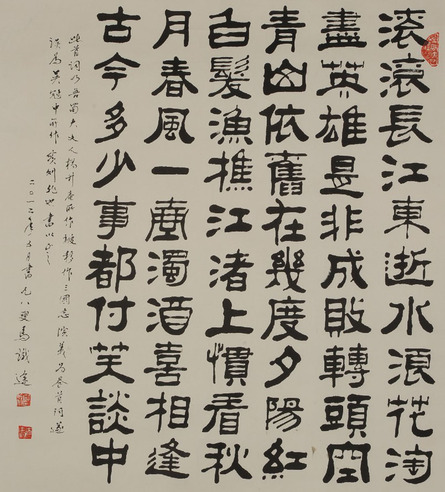 滾滾長江東逝水浪花淘
盡英雄是非成敗轉頭空
青山依舊在幾度夕陽紅
白髮漁樵江渚上慣看秋
月春風一壺濁酒喜相逢
古今多少事都付笑談中
此首詞乃吾蜀大文人楊升庵所作被移作三國志演義為卷首詞遂
二〇一二年五月書 九八叟馬識途